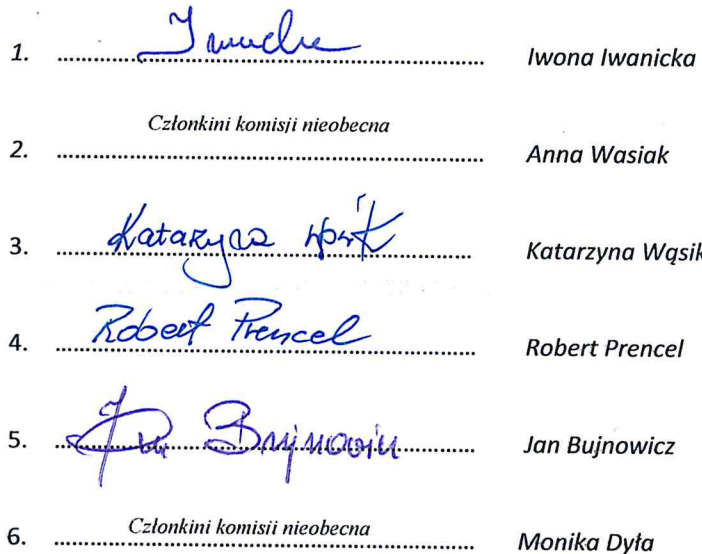 1. Iwona Iwanicka
Członkini komisji nieobecna
2. Anna Wasiak
3. Katarzyna Wąsik Katarzyna Wąsik
4. Robert Prencel Robert Prencel
5. Jan Bujnowicz Jan Bujnowicz
Członkini komisji nieobecna
6. Monika Dyła